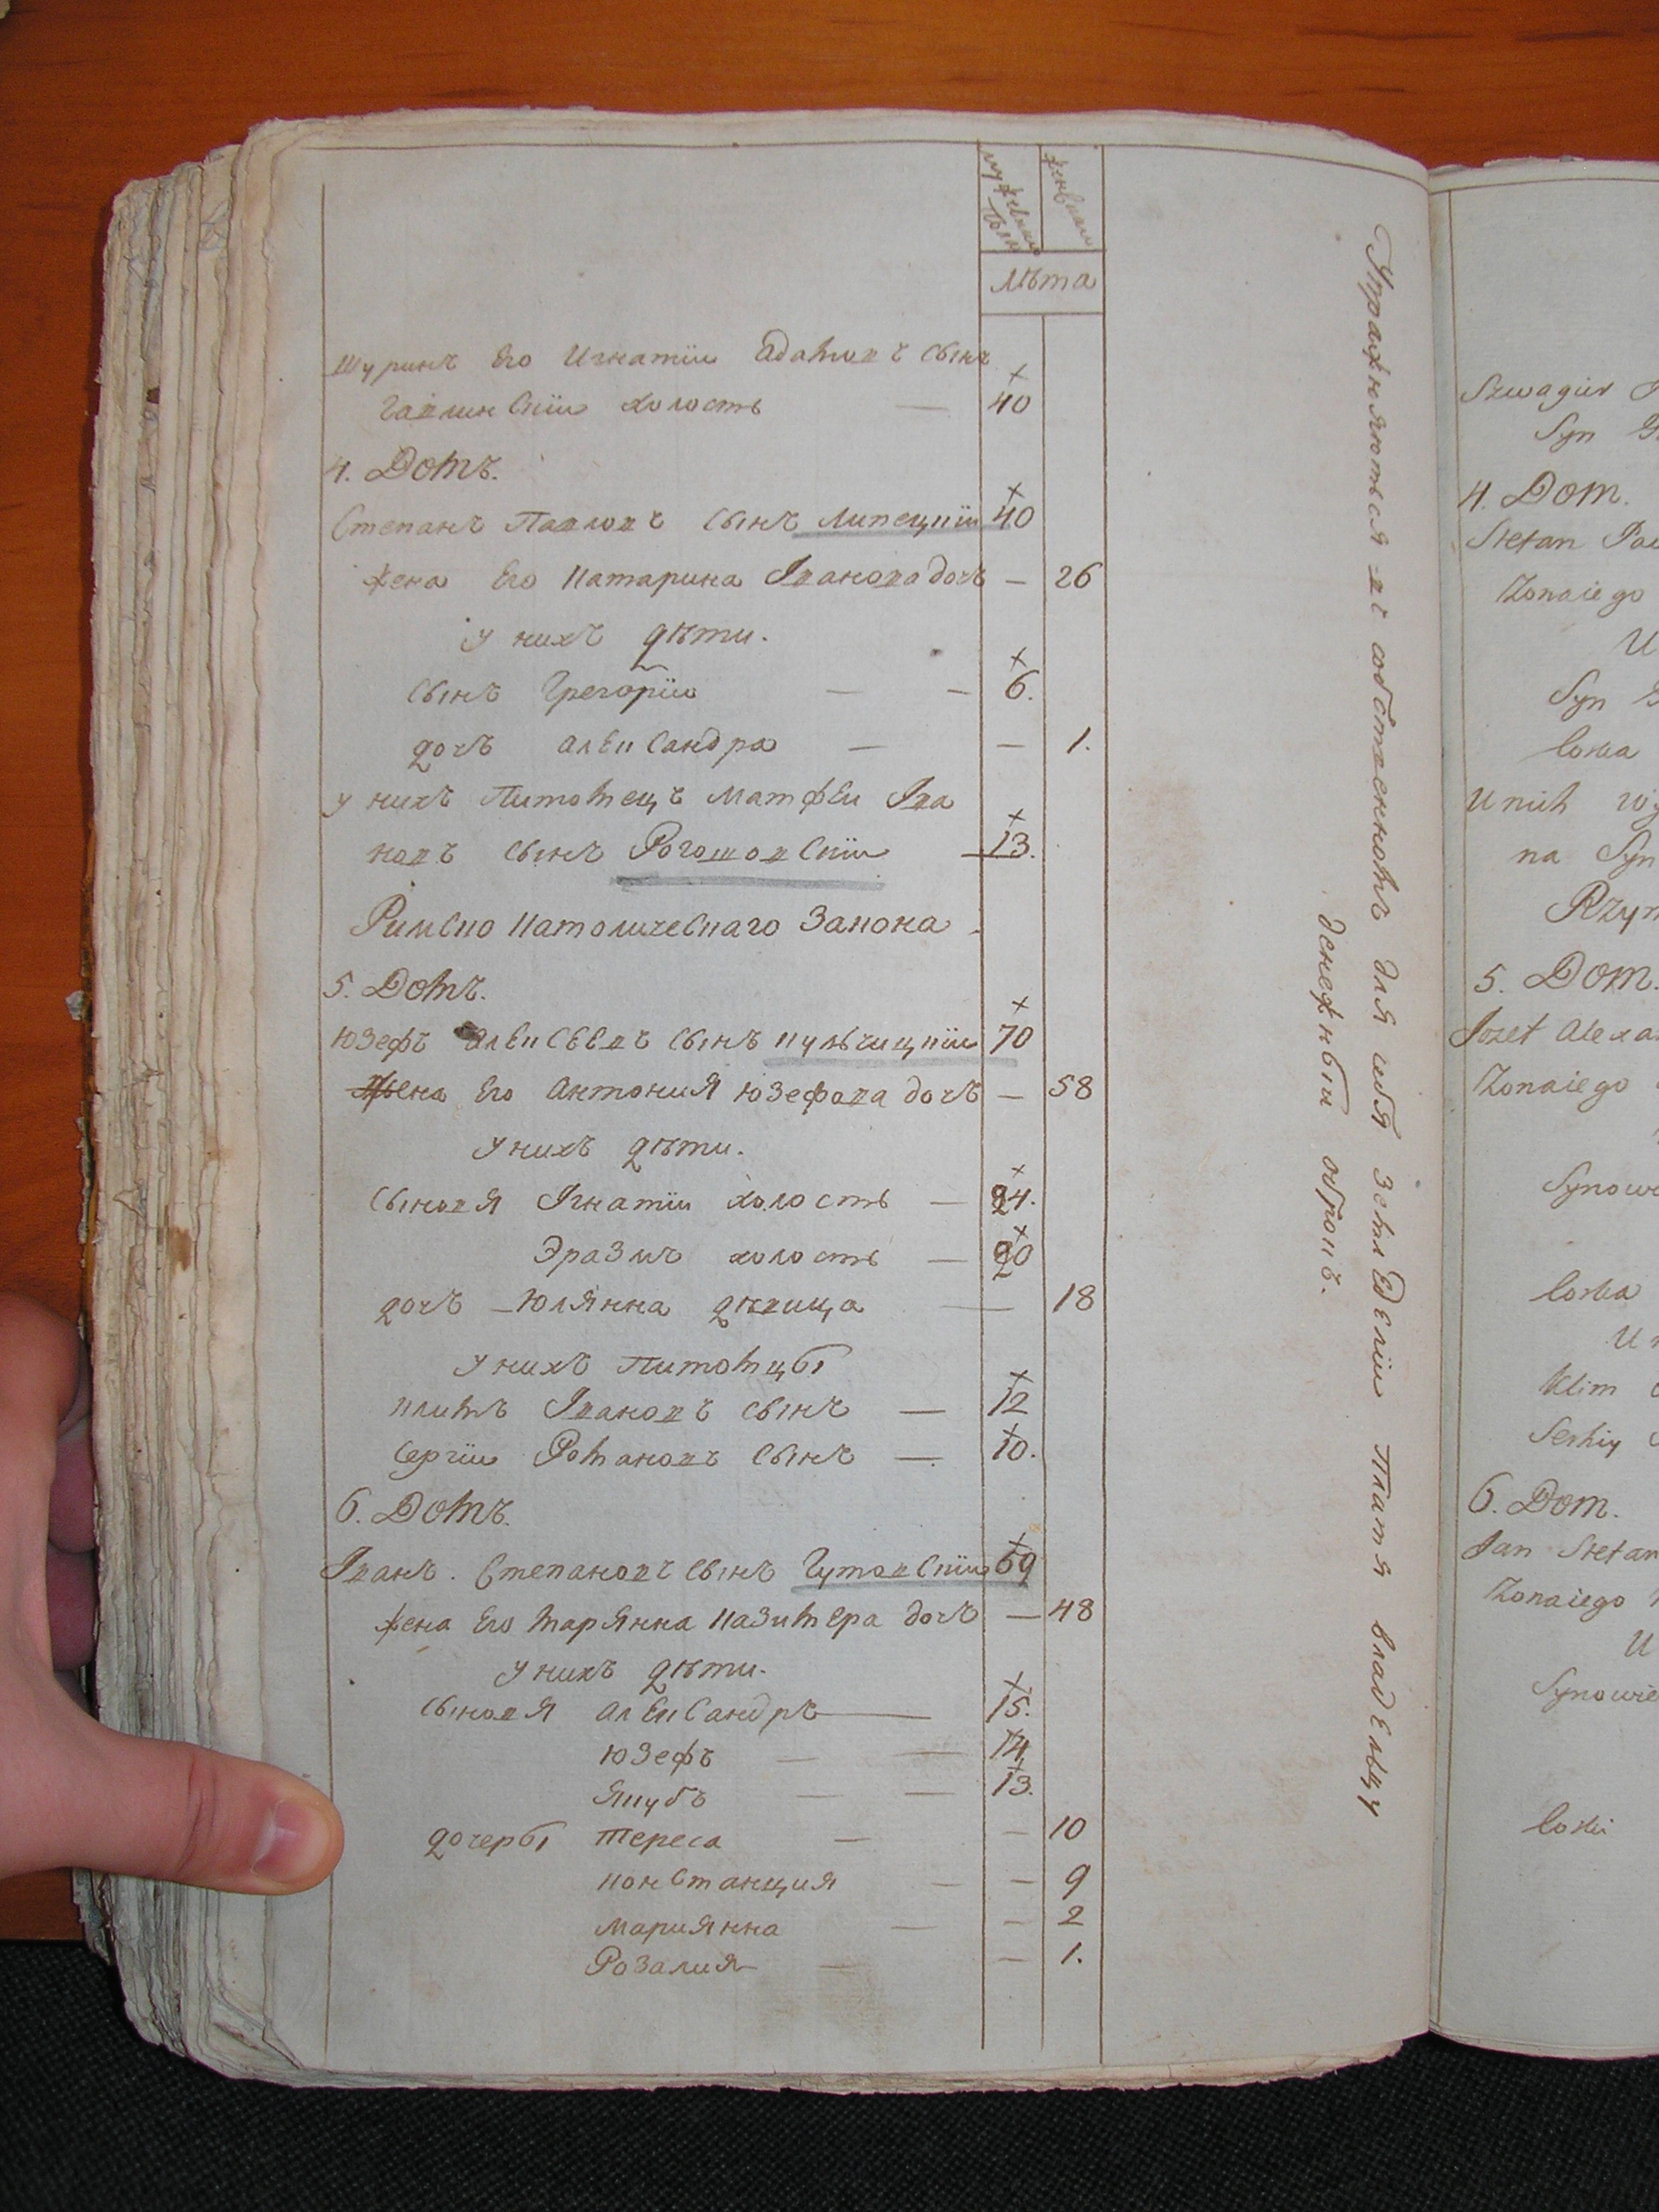 мужеска
пола
женскаго
Лѣта
Шуринъ Его Игнатїи Адамовъ Сынъ
Гавлинскїи холостъ — 40
4. Домъ.
Степанъ Павловъ Сынъ Липецкїи 40
жена Его Катарина Івановадочь — 26
У нихъ дѣти.
Сынъ Грегорїи — — 6.
дочь александра — — 1.
У нихъ Питомецъ Матфеи Іва
новъ Сынъ Рогошовскїи — 13.
Римско Католическаго Закона
5. Домъ.
Юзефъ алексеевъ Сынъ Кульчицкїи 70
жена Его Антония Юзефова дочь — 58
У нихъ дѣти.
Сыновя Ігнатїи холостъ — 24.
Эразмъ холостъ — 20
дочь Юлянна дѣвица — 18
У нихъ Питомцы
Климъ Івановъ Сынъ — 12
Сергїи Романовъ Сынъ — 10.
6. Домъ.
Іванъ Степановъ Сынъ Гутовскїи 69
жена Его Марянна Казимера дочь — 48
У нихъ дѣти.
Сыновя Александръ — 15.
Юзефъ — — 14
Якубъ — — 13.
дочеры Тереса — — 10
Констанция — — 9
Мариянна — — 2
Розалия — — 1.
Упражняются въ собственномъ для себя земледелїи платя владельцу
денежныи оброкъ.
Szwagier
Syn
4. Dom.
Stefan
Zonaiego
U
Syn
Corka
U nich
na Syn
5. Dom.
Jozef
Zonaiego
Corka
U
Klim
Serhiy
6. Dom.
Jan Stefan
Zonaiego
U
Corki